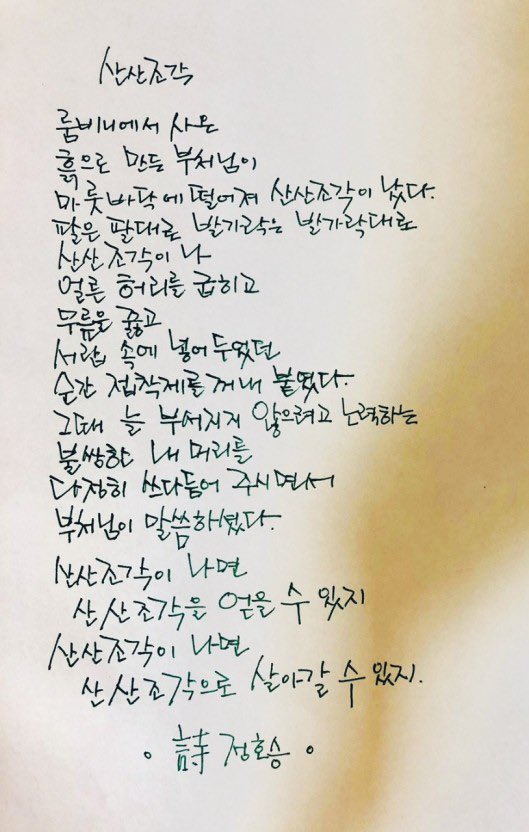 산산조각
룸비니에서 사온
흙으로 만든 부처님이
마룻바닥에 떨어져 산산조각이 났다.
팔은 팔대로 발가락은 발가락대로
산산조각이 나
얼른 허리를 굽히고
무릎을 꿇고
서랍 속에 넣어 두었던
순간 접착제를 꺼내 붙였다.
그때 늘 부서지지 않으려고 노력하는
불쌍한 내 머리를
다정히 쓰다듬어 주시면서
부처님이 말씀하셨다.
산산조각이 나면
산산조각을 얻을 수 있지
산산조각이 나면
산산조각으로 살아갈 수 있지.
• 詩 정호승 •